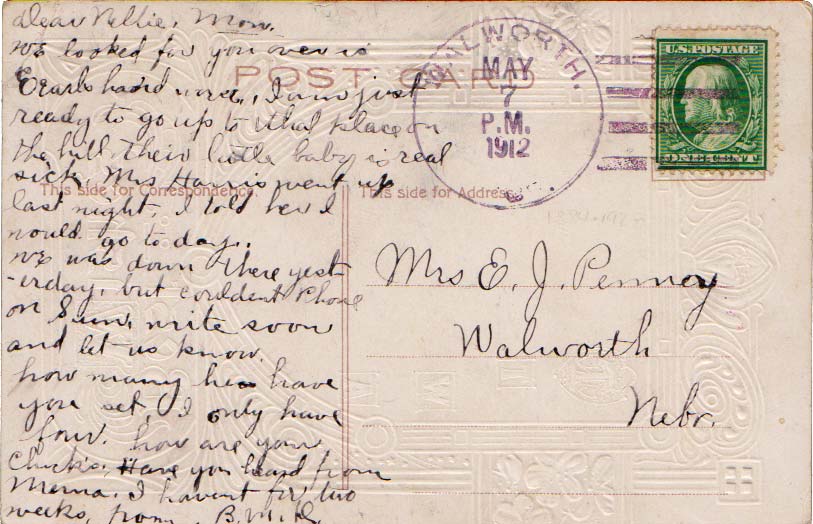 Dear Nellie, Mon.
We looked for you over is
hard work, I am just
ready to go up to that place on
the hill, their little baby is real
sick, Mrs Harris went up
last night, I told her I
would go to day.
We was down there yest-
erday, but couldent Phone
on Sun, write soon
and let us know.
how many hens have
you set I only have
four. how are your
Chicks. Have you heard from
Merna. I havent for two
weeks, from B.M.D.
POST CARD
WALWORTH.
MAY
7
P.M.
1912
U.S. POSTAGE
ONE CENT
This side for Correspondence.
This side for Address.
Mrs E. J. Penney
Walworth
Nebr.